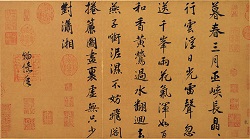 暮春三月巫峽長晶
行雲浮日光雷聲忽
送千峯雨花氣渾如百
和香黃鶯過水翻迴去
燕子銜泥濕不妨飛閣
捲簾圖畫裏虛無只少
對瀟湘